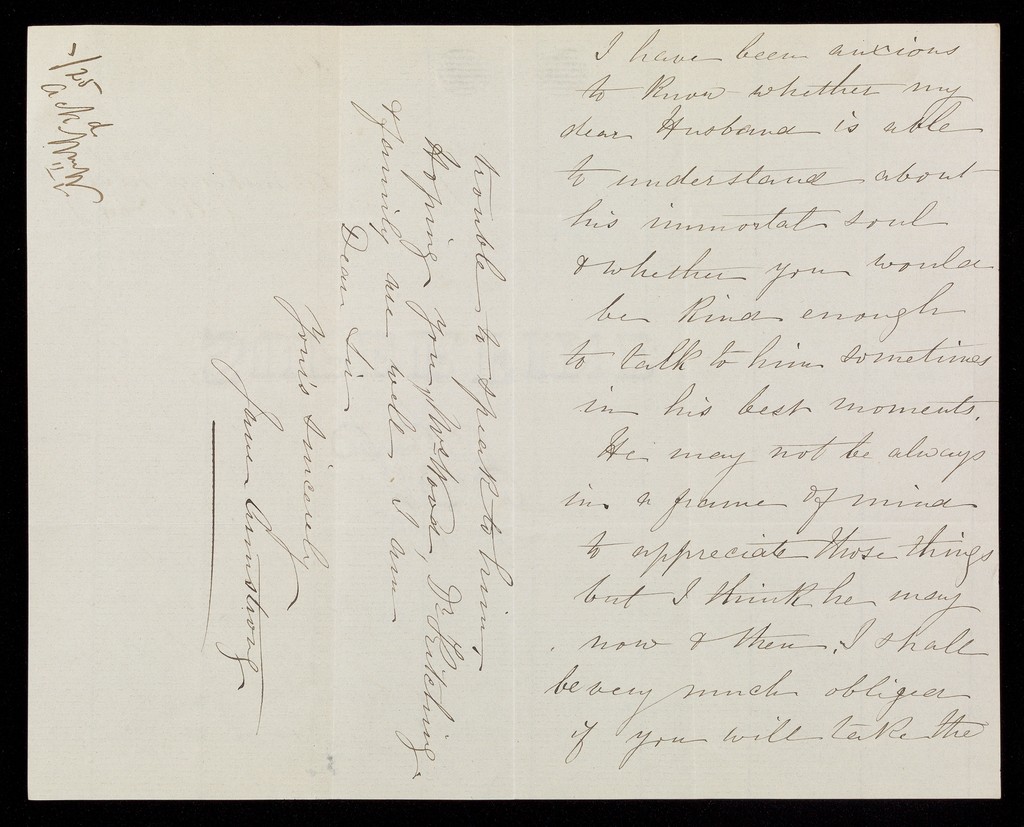 I have been anxious
to know whether my
dear Husband is able
to understand about
his immortal soul
& whether you would
be kind enough
to talk to him sometimes
in his best moments.
He may not be always
in a frame of mind
to appreciate those things
but I think he may
now & then. I shall
be very much obliged
if you will take the
trouble to speak to him.
Hoping you, Mrs Wood, Dr Kitching
& family are well. I am
Dear Sir
Yours sincerely
Jane Armstrong
/25
ackd